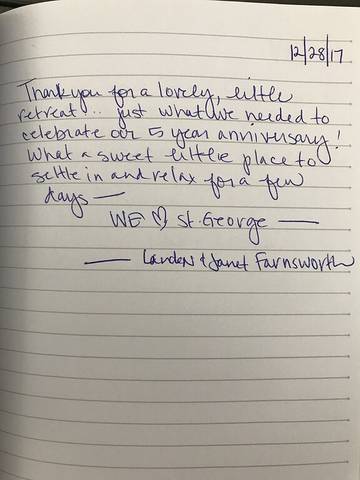 12/28/17
Thank you for a lovely, little
retreat... just what we needed to
celebrate our 5 year anniversary!
What a sweet little place to
settle in and relax for a few
days —
WE ♡ St. George —
— Landon & Janet Farnsworth